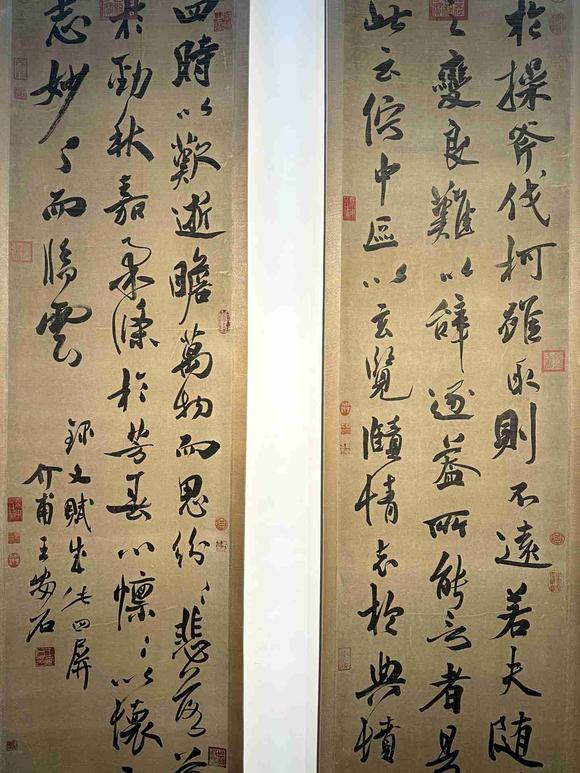 於操斧伐柯雖取則不遠若夫隨
之變良難以辭逮蓋所能言者具
此云佇中區以玄覽頤情志於典墳
四時以歎逝瞻萬物而思紛〻悲落
於勁秋嘉柔條於芳春心懍〻以懷
志妙〻而臨雲
錄文賦成此四屏
介甫王安石